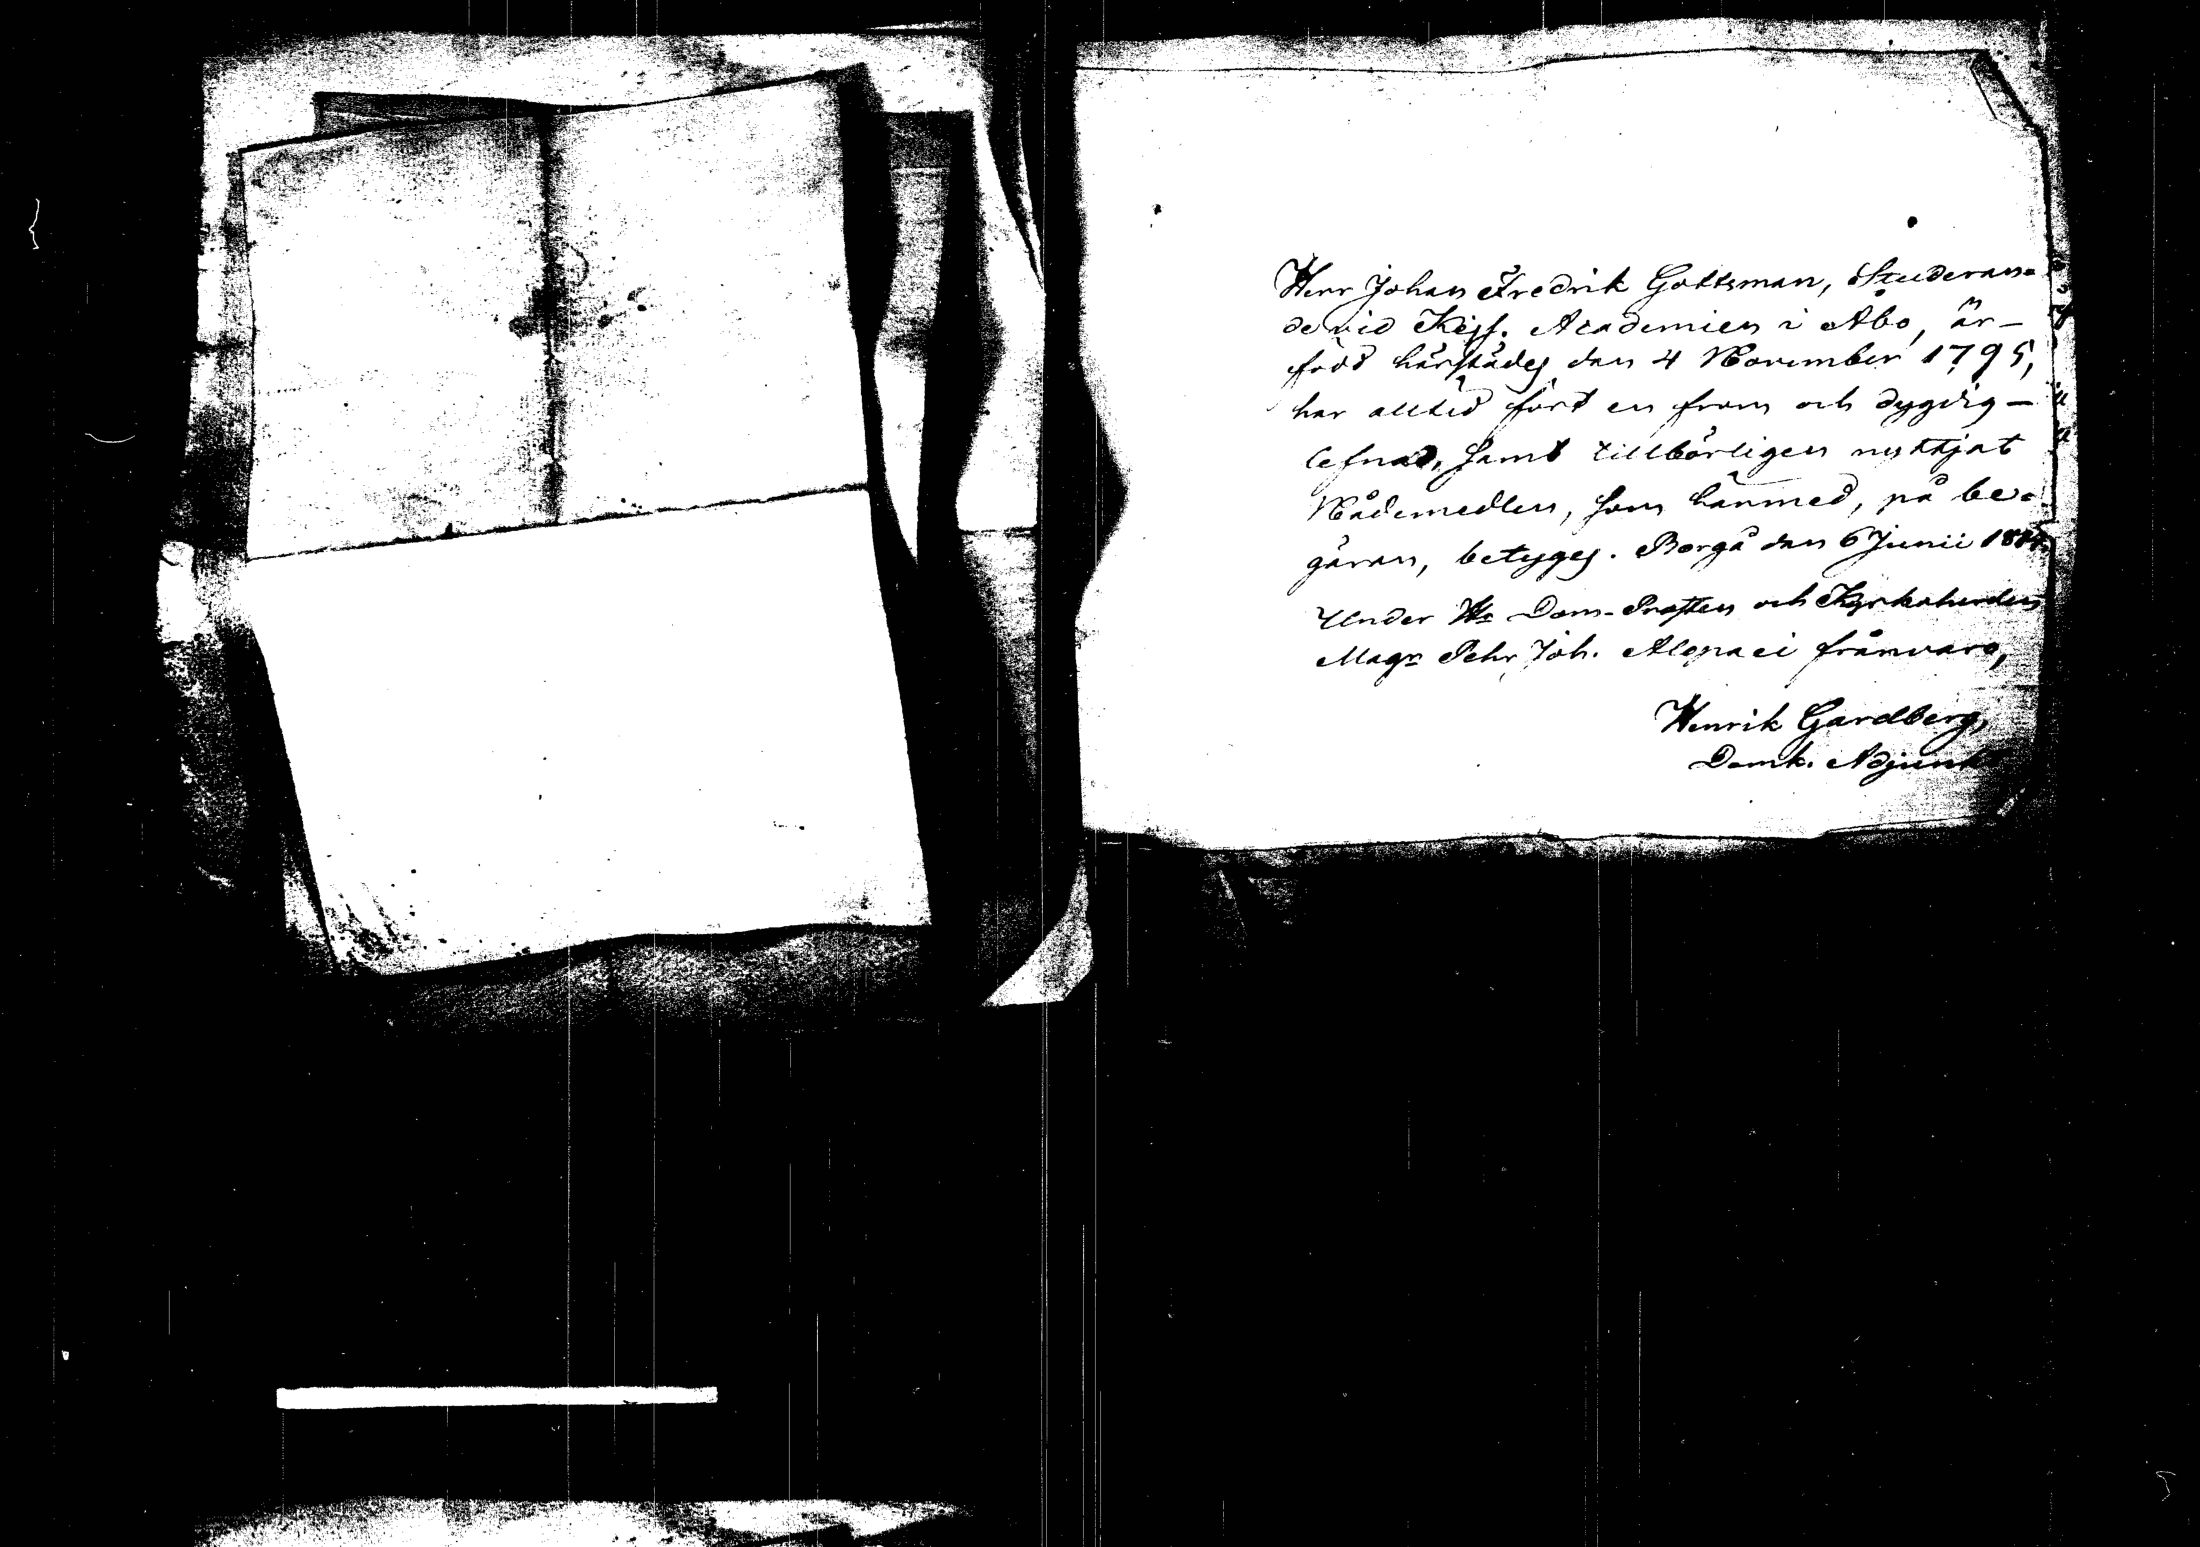 Herr Johan Fredrik Gottsman, Studeran-
de vid Kejs. Academien i Åbo, är
född härstädes den 4 November 1795,
har alltid fört en from och dygdig
lefnad, samt tillbörligen nyttjat
Nådemedlen, som härmed, på be-
gäran, betyges. Borgå den 6 Junii
Under Hr Dom-Prosten och Kyrkoherden
Magr Pehr Joh. Alopaei frånvaro,
Henrik Gardberg,
Domk. Adjunkt